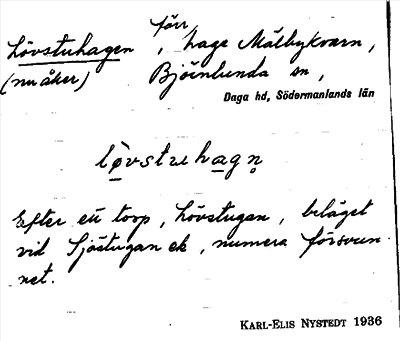 förr
Lövstuhagen, hage Mälbykvarn,
(nu åker) Björnlunda sn,
Daga hd, Södermanlands län
lövstuhagn̥
Efter ett torp, Lövstugan, beläget
vid Sjöstugan ek, numera försvun
net.
KARL-ELIS NYSTEDT 1936